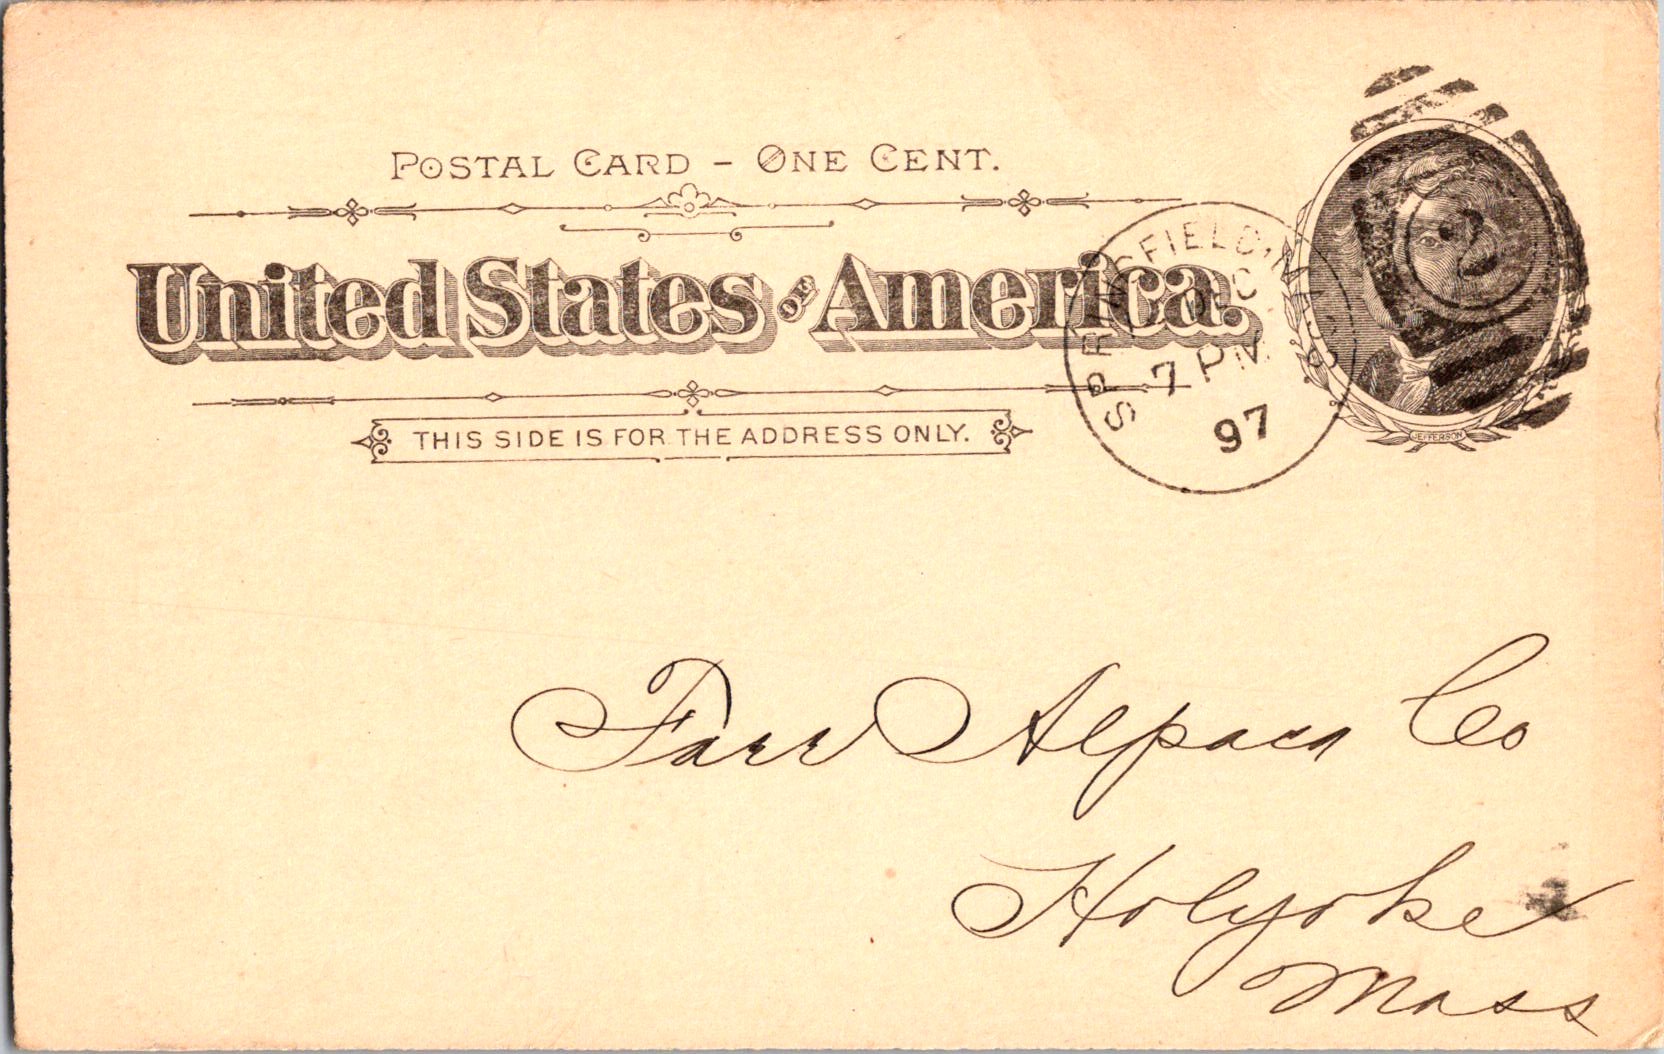 POSTAL CARD – ONE CENT.
United States OF America.
THIS SIDE IS FOR THE ADDRESS ONLY.
SPRINGFIELD, MASS.
7 PM
97
2
JEFFERSON
Farr Alpaca Co
Holyoke
Mass